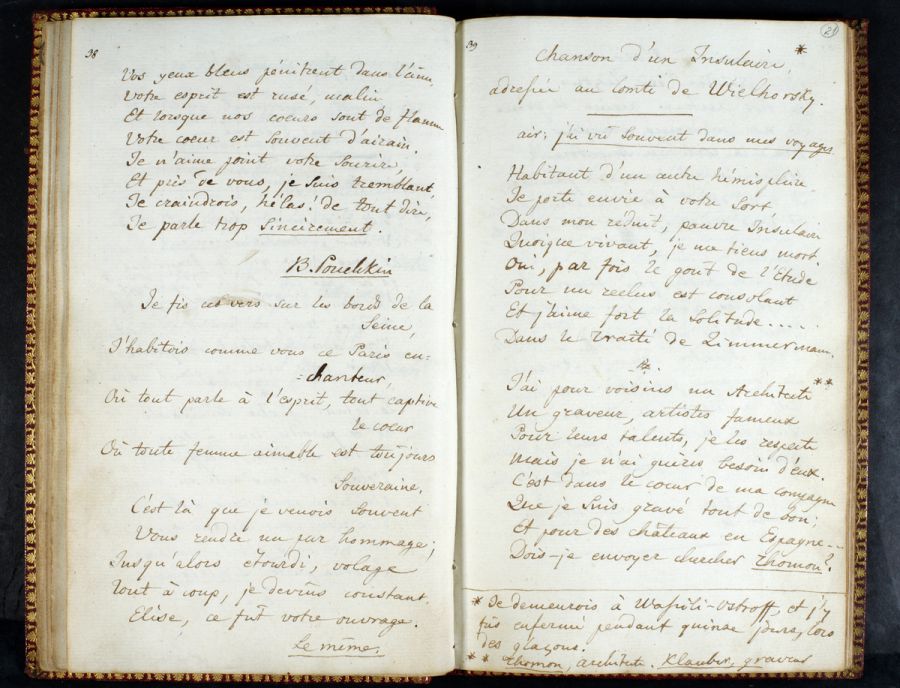 38
Vos yeux bleus pénétrent dans l'ame,
Votre esprit est rusé, malin
Et lorsque nos coeurs sont de flamme
Votre coeur est souvent d'airain.
Je n'aime point votre sourire,
Et près de vous, je suis tremblant,
Je craindrois, hélas! de tout dire,
Je parle trop sincirement.
B. Pouchkin
Je fis ces vers sur les bords de la
Seine,
J'habitois comme vous ce Paris en=
=chanteur,
Où tout parle à l'esprit, tout captive
le coeur
Où toute femme aimable est toujours
Souveraine,
C'est là que je venois souvent
Vous rendre un pur hommage;
Jusqu'alors étourdi, volage
Tout à coup, je devins constant.
Elise, ce fut votre ouvrage.
Le même.
39
21
Chanson d'un Insulaire, *
adressée au Comte de Wielhorsky.
air: j'ai vu souvent dans mes voyages
Habitant d'un autre hémisphère
Je porte envie à votre sort
Dans mon réduit, pauvre Insulaire
Quoique vivant, je me tiens mort
Oui, par fois le goût de l'Etude
Pour un reclus est consolant
Et j'aime fort la solitude.....
Dans le Traité de Zimmermann.
J'ai pour voisins un Architecte **
Un graveur, artistes fameux
Pour leurs talents, je les respecte
Mais je n'ai guères besoin d'eux.
C'est dans le coeur de ma compagne
Que je suis gravé tout de bon;
Et pour des châteaux en Espagne--
Dois-je envoyer chercher Thomon?
* Je demeurois à Wassili-Ostroff, et j'y
fus enfermé pendant quinze jours, lors
des glaçons.
** Thomon, architecte. Klauber, graveur